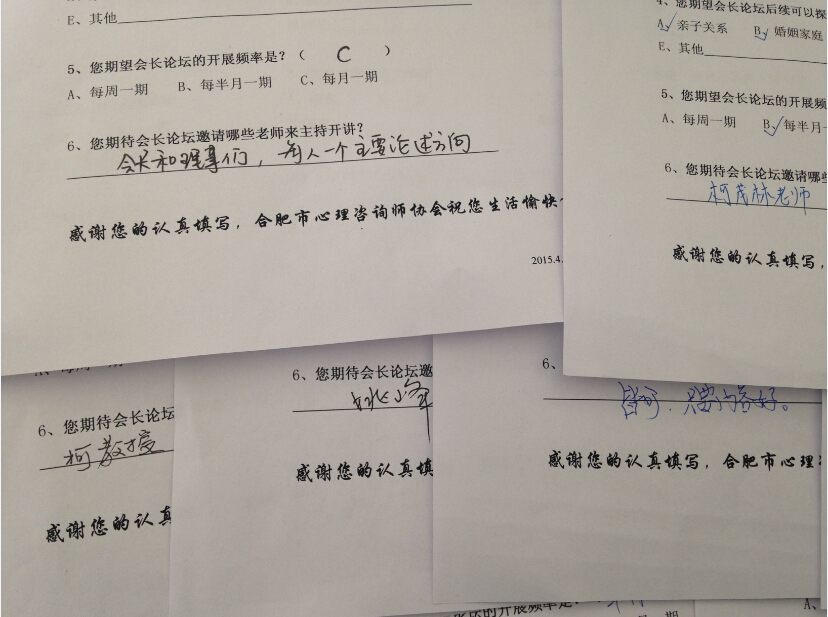 E、其他
5、您期望会长论坛的开展频率是?( C )
A、每周一期 B、每半月一期 C、每月一期
6、您期待会长论坛邀请哪些老师来主持开讲?
会长和理事们,每人一个主要论述方向
感谢您的认真填写,合肥市心理咨询师协会祝您生活愉快
2015.4.
4、您期望会长论坛后续可以探
A、亲子关系 B、婚姻家庭
E、其他
5、您期望会长论坛的开展频
A、每周一期 B、每半月一
6、您期待会长论坛邀请哪些
柯茂林老师
感谢您的认真填写,
6、您期待会长论坛
柯教授
感谢您的认真
6、您期待会长论坛邀
感谢您的认真填
6、
皆可,只要内容好。
感谢您的认真填写,合肥市心理
的开展频率是
A、